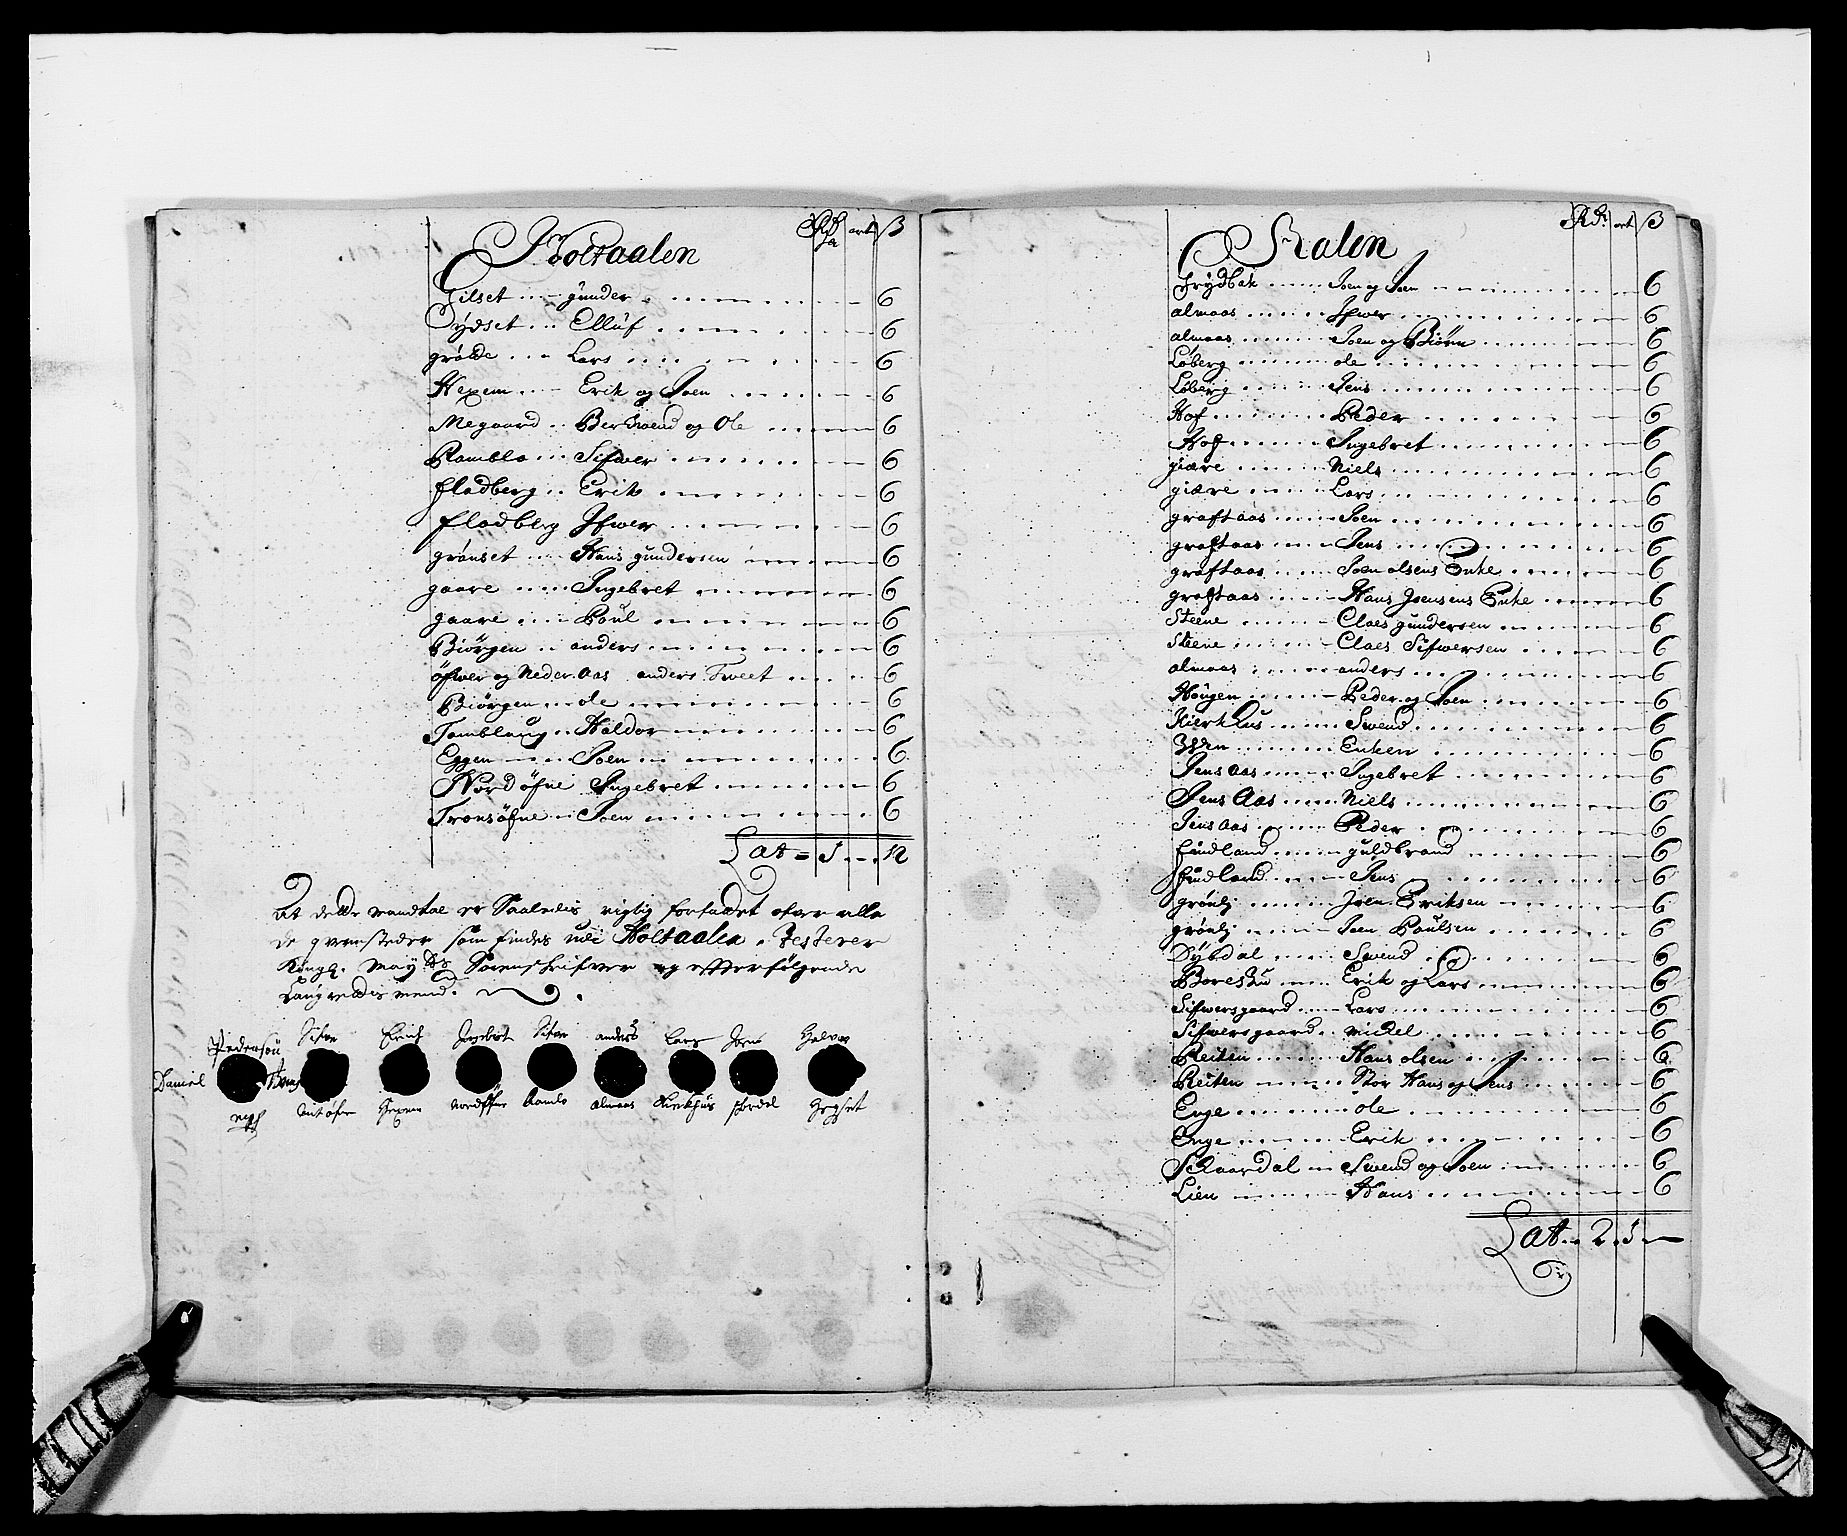 Holtaalen Rdr ort ß
Gilset gunder 6
Sydset Elluf 6
grødde Lars 6
Hexem Erik og Joen 6
Megaard Ber Svend og Ole 6
Ramblo Sifwer 6
fladberg Erik 6
fladberg Ifwer 6
grønset Hans gundersen 6
gaare Ingebret 6
gaare Poul 6
Biørgen anders 6
øfwer og Neder Aas anders Tweet 6
Biørgen ole 6
Tamblaug Haldor 6
Eggen Joen 6
Nordøfne Ingebret 6
Tronsøfne Joen 6
Lat = 1 - 12
At dette mandtal er Saaledis rigtig forfattet ofwer alle
de gvernsteder som findes udi Holtaalen, Testerer
Kongl. May ts Sorenskrifwer og effterfølgende
Laugrettis mend.
Pedersøn Sifver Erich Ingebret Sifver anders Lars Joen Halvor
Daniel
Hexem Nordøfne Ramlo almaas Kirkhus Hegset
Aalen Rdr ort ß
frydbak Joen og Joen 6
almaas Ifwer 6
almaas Joen og Biørn 6
Løberg ole 6
Løberg Jens 6
Hof Peder 6
Hof Ingebret 6
giære Niels 6
giære Lars 6
graftaas Joen 6
graftaas Jens 6
graftaas Joen olsens Enke 6
graftaas Hans Joensens Enke 6
Steene Claes gundersen 6
Steene Claes Sifwersen 6
almaas anders 6
Hougen Peder og Joen 6
Kierkhus Swend 6
Enken 6
Jens aas Ingebret 6
Jens Aas Niels 6
Jens aas Peder 6
findland guldbrand 6
findland Jens 6
grønlj Joen Eriksen 6
grønlj Joen Poulsen 6
Dybdal Swend 6
Boreshu Erik og Lars 6
Sifwersgaard Lars 6
Sifwersgaard michel 6
Reiten Hans olsen 6
Reiten Stor Hans og Jens 6
Enge ole 6
Enge Erik 6
Skaardal Swend og Joen 6
Lien Hans 6
Lat = 2 - 1 -